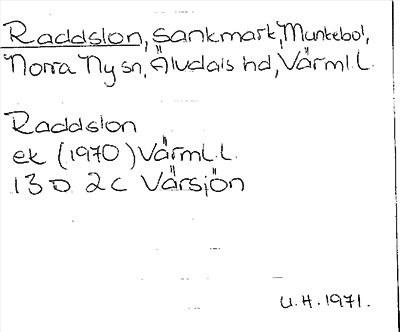 Raddslon, Sankmark, Munkebol,
Norra Ny sn, Älvdals hd, Värml. L.
Raddslon
ek (1970) Värml. L.
13 D 2 c Vårsjön
U. H. 1971.